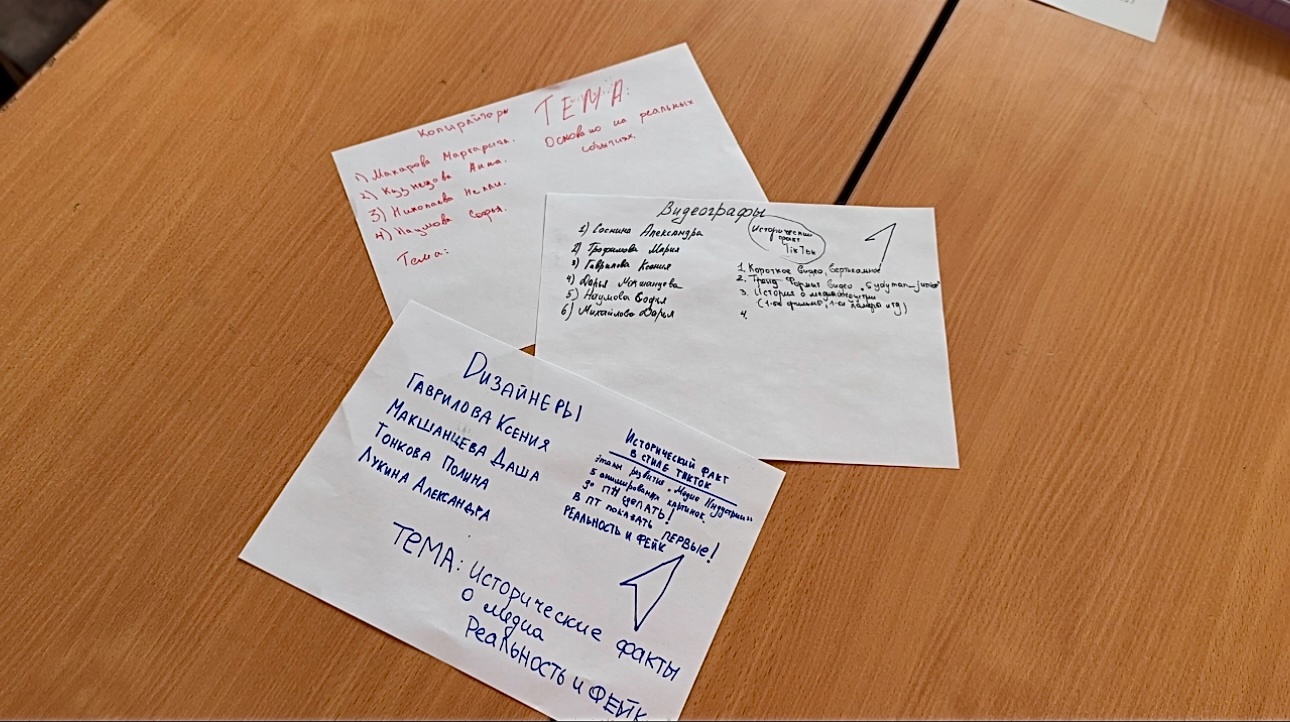 Копирайторы
1) Макарова Маргарита.
2) Кузнецова Анна.
3) Николаева Нелли.
4) Наумова Софья.
Тема:
ТЕМА:
Основано на реальных
событиях.
Видеографы
1) Соснина Александра
2) Трофимова Мария
3) Гаврилова Ксения
4) Дарья Макшанцева
5) Наумова Софья
6) Михайлова Дарья
Исторический
факт
TikTok
1. Короткое видео, вертикальное
2. Тренд Формат видео
3. История о медиа
(1-ый фильм, 1-ая камера и тд)
4.
Dизайнеры
Гаврилова Ксения
Макшанцева Даша
Тонкова Полина
Лукина Александра
Исторический факт
в стиле ТикТок
этапы развития „Медиа Индустрии"
5 анимированных картинок.
до ПН сделать!
в ПТ показать первые!
Реальность и фейк
Тема: исторические факты
о медиа
Реальность и фейк